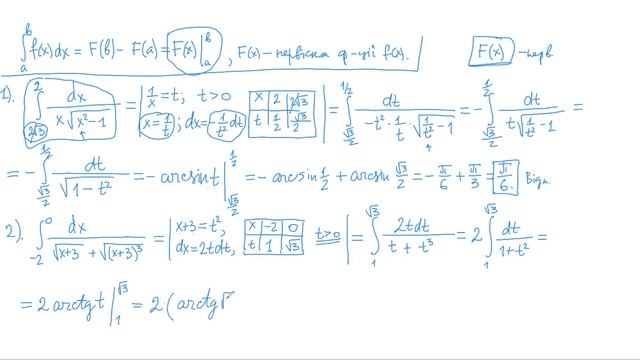 ∫_a^b f(x)dx = F(b) − F(a) = F(x)|_a^b , F(x) − первісна ф-ції f(x). F(x) − перв.
1). ∫_{2√3}^2 dx / (x√(x²−1)) = | 1/x = t; t>0 x = 1/t; dx = 1/t² dt x 2 2√3 t 1/2 √3/2 | = ∫_{√3/2}^{1/2} dt / (−t² · 1/t · √(1/t² − 1)) = −∫_{√3/2}^{1/2} dt / (t√(1/t² − 1)) =
= −∫_{√3/2}^{1/2} dt / √(1−t²) = − arcsin t |_{√3/2}^{1/2} = − arcsin 1/2 + arcsin √3/2 = − π/6 + π/3 = π/6. Відп.
2). ∫_{−2}^0 dx / (√(x+3) + √((x+3)³)) = | x+3 = t², dx = 2tdt, x −2 0 t 1 √3 t>0 | = ∫_1^{√3} 2tdt / (t + t³) = 2 ∫_1^{√3} dt / (1+t²) =
= 2 arctg t |_1^{√3} = 2 ( arctg √